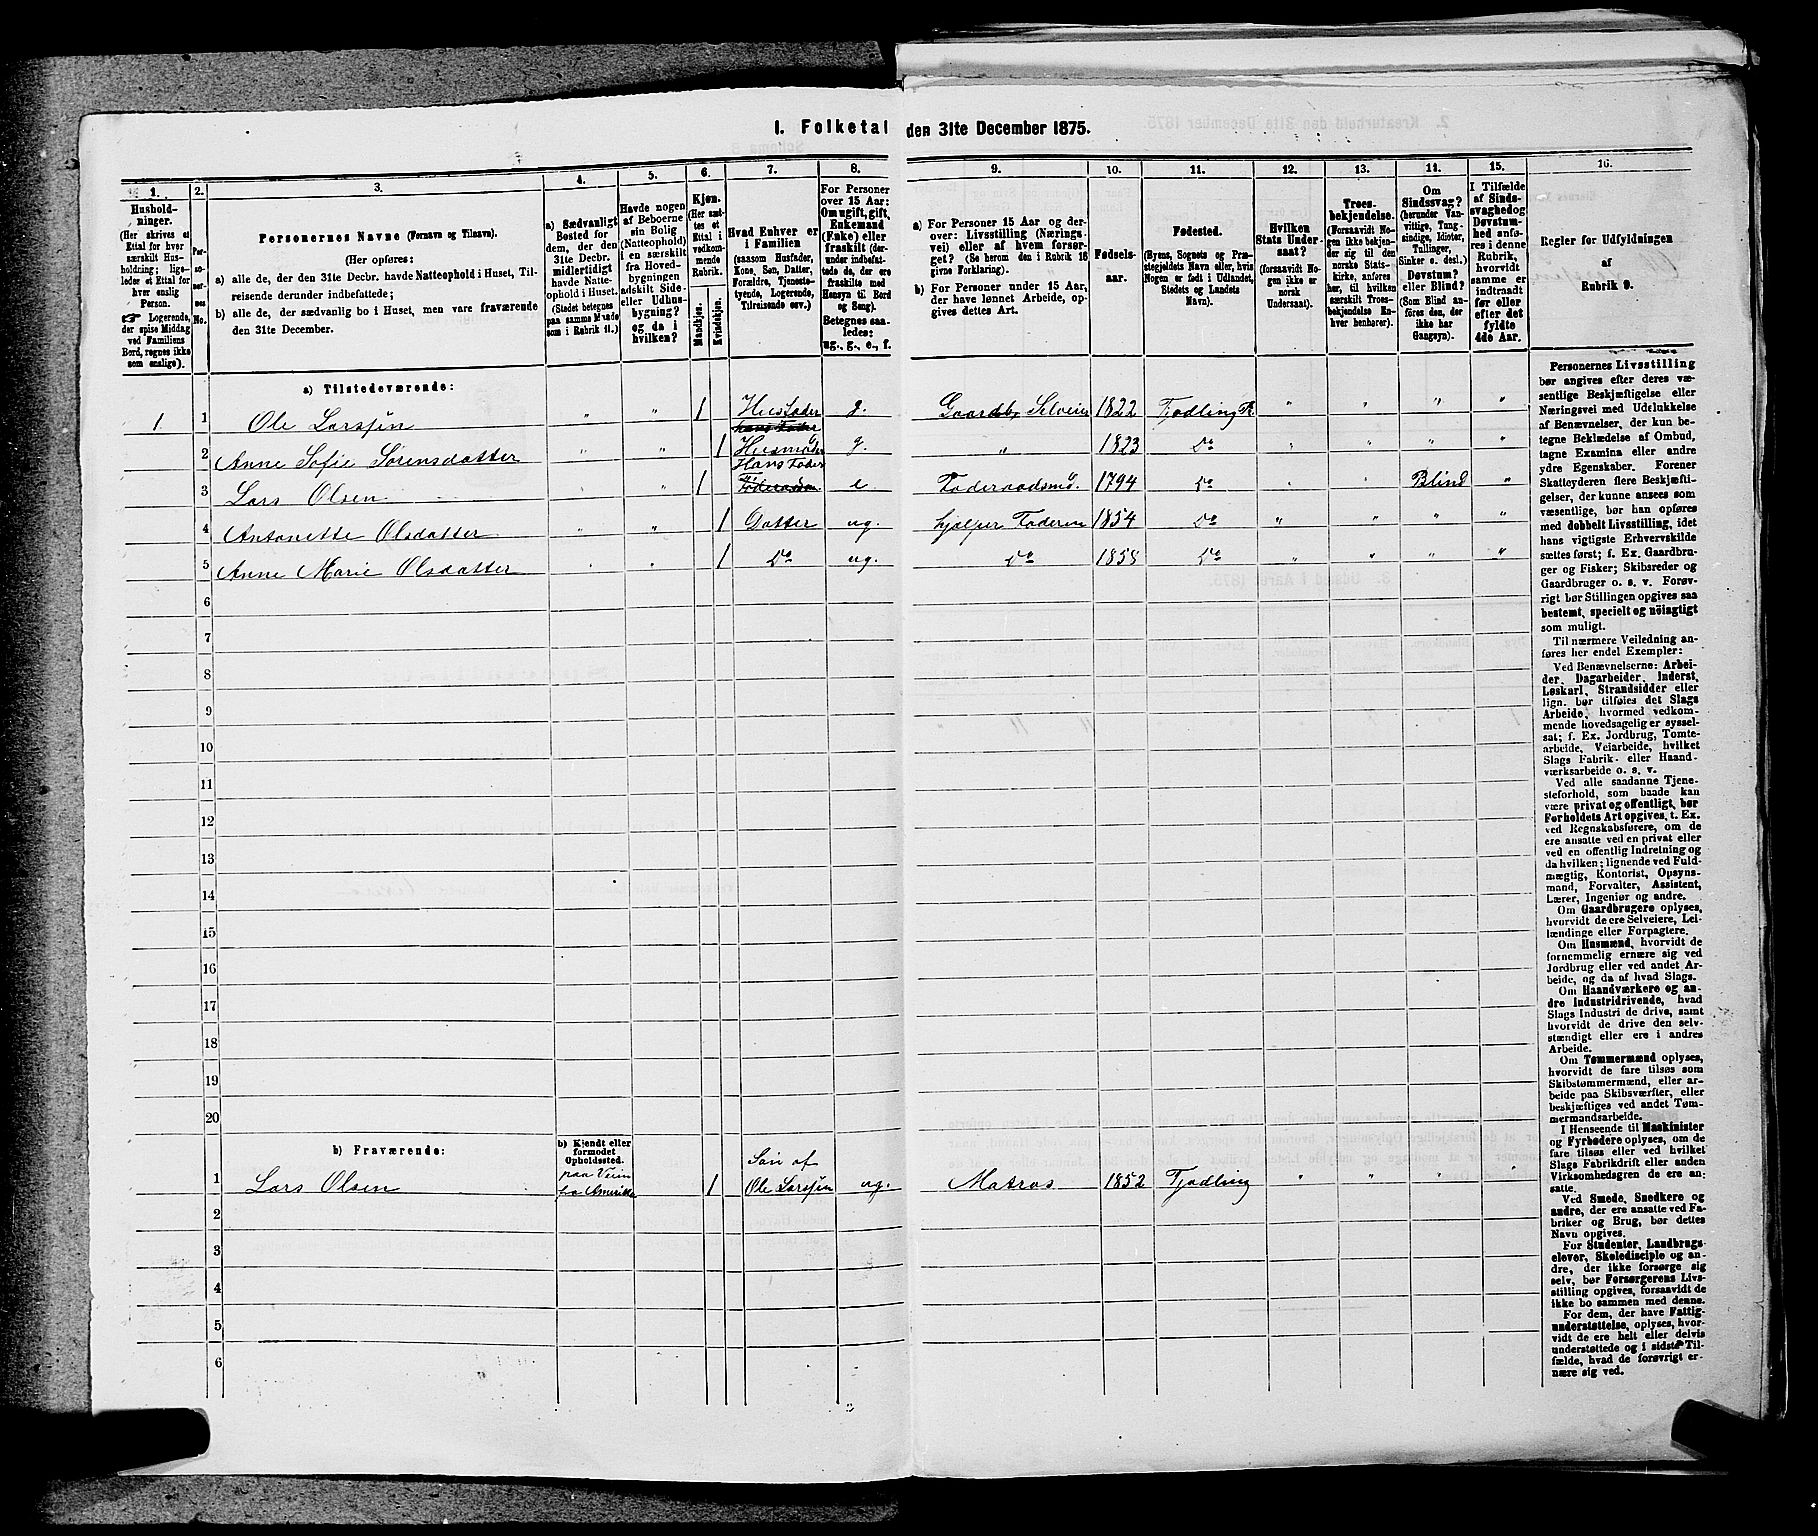 1. Folketal den 31te December 1875.
1. 2. 3. 4. 5. 6. 7. 8. 9. 10. 11. 12. 13. 14. 15. 16.
Husholdninger.
(Her skrives et
Ettal for hver
særskilt Husholdning;
ligeledes
et Ettal for
hver enslig
Person.
☞ Logerende,
der spise Middag
ved Familiens
Bord, regnes ikke
som enslige).
Personernes No.
Personernes Navne (Fornavn og Tilnavn).
(Her opføres:
a) alle de, der den 31te Decbr. havde Natteophold i Huset, Tilreisende
derunder indbefattede;
b) alle de, der sædvanlig bo i Huset, men vare fraværende
den 31te December.
a) Sædvanligt
Bosted for
dem, der den
31te Decbr.
midlertidigt
havde Natteophold
i Huset.
(Stedet betegnes
paa samme Maade
som i Rubrik 11.)
Havde nogen
af Beboerne
sin Bolig
(Natteophold)
i en særskilt
fra Hovedbygningen
adskilt Side- eller Udhusbygning?
og da i
hvilken?
Kjøn.
(Her sættes
et
Ettal i
vedkommende
Rubrik.
Mandkjøn.
Kvindekjøn.
Hvad Enhver er
i Familien
(saasom Husfader,
Kone, Søn, Datter,
Forældre, Tjenestetyende,
Logerende,
Tilreisende osv.)
For Personer
over 15 Aar:
Om ugift, gift,
Enkemand
(Enke) eller
fraskilt (derunder
indbefattede
de, der ere
fraskilte med
Hensyn til Bord
og Seng).
Betegnes saaledes:
ug., g., e., f.
a) For Personer 15 Aar og derover:
Livsstilling (Næringsvei)
eller af hvem forsørget?
(Se herom den i Rubrik 16
givne Forklaring).
b) For Personer under 15 Aar,
der have lønnet Arbeide, opgives
dettes Art.
Fødselsaar.
Fødested.
(Byens, Sognets og Præstegjeldets
Navn eller, hvis
Nogen er født i Udlandet,
Stedets og Landets
Navn).
Hvilken
Stats Undersaat?
(forsaavidt Nogen
ikke er
norsk
Undersaat).
Troesbekjendelse.
(Forsaavidt Nogen
ikke bekjender
sig til den
norske Statskirke,
anføres
her, til hvilken
særskilt Troesbekjendelse
Enhver
henhører).
Om
Sindssvag?
(herunder Vanvittige,
Tungsindige,
Idioter,
Tullinger,
Sinker o. desl.)
Døvstum?
eller Blind?
(Som Blind anføres
den, der
ikke har
Gangsyn).
I Tilfælde
af Sindssvaghed
og
Døvstumhed
anføres
i denne
Rubrik,
hvorvidt
samme er
indtraadt
før eller
efter det
fyldte
4de Aar.
Regler for Udfyldningen
af
Rubrik 9.
a) Tilstedeværende:
1 1 Ole Larssen " " 1 Husfader g. Gaardbr Selveier 1822 Tjødling Pr " " " "
hans Fader
2 Anne Sofie Sørensdatter " " 1 Husmoder g. " 1823 Do " " " "
Hans Fader
3 Lars Olsen " " 1 e Føderaadsm. 1794 Do " " Blind "
4 Antonette Olsdatter " " 1 Datter ug. hjælper Faderen 1854 Do " " " "
5 Anne Marie Olsdatter " " 1 Do ug. Do 1858 Do " " " "
6
7
8
9
10
11
12
13
14
15
16
17
18
19
20
b) Fraværende:
b) Kjendt eller
formodet
Opholdssted.
paa Veien Søn af
1 Lars Olsen fra Amerika 1 Ole Larssen ug. Matros 1852 Tjødling " " " "
2
3
4
5
6
Personernes Livsstilling
bør angives efter deres væsentlige
Beskjæftigelse eller
Næringsvei med Udelukkelse
af Benævnelser, der kun betegne
Beklædelse af Ombud,
tagne Examina eller andre
ydre Egenskaber. Forener
Skatteyderen flere Beskjæftigelser,
der kunne ansees som
væsentlige, bør han opføres
med dobbelt Livsstilling, idet
hans vigtigste Erhvervskilde
sættes først; f. Ex. Gaardbruger
og Fisker; Skibsreder og
Gaardbruger o. s. v. Forøvrigt
bør Stillingen opgives saa
bestemt, specielt og nøiagtigt
som muligt.
Til nærmere Veiledning anføres
her endel Exempler:
Ved Benævnelserne: Arbeider,
Dagarbeider, Inderst,
Løskarl, Strandsidder eller
lign. bør tilføies det Slags
Arbeide, hvormed vedkommende
hovedsagelig er sysselsat;
f. Ex. Jordbrug, Tomtearbeide,
Veiarbeide, hvilket
Slags Fabrik- eller Haandværksarbeide
o. s. v.
Ved alle saadanne Tjenesteforhold,
som baade kan
være privat og offentligt, bør
Forholdets Art opgives, t. Ex.
ved Regnskabsførere, om de
ere ansatte ved en privat eller
ved en offentlig Indretning og
da hvilken; lignende ved Fuldmægtig,
Kontorist, Opsynsmand,
Forvalter, Assistent,
Lærer, Ingeniør og andre.
Om Gaardbrugere oplyses,
hvorvidt de ere Selveiere, Leilændinge
eller Forpagtere.
Om Husmænd, hvorvidt de
fornemmelig ernære sig ved
Jordbrug eller ved andet Arbeide,
og da af hvad Slags.
Om Haandværkere og andre
Industridrivende, hvad
Slags Industri de drive, samt
hvorvidt de drive den selvstændigt
eller ere i andres
Arbeide.
Om Tømmermænd oplyses,
hvorvidt de fare tilsøs som
Skibstømmermænd, eller arbeide
paa Skibsværfter, eller
beskjæftiges ved andet Tømmermandsarbeide.
I Henseende til Maskinister
og Fyrbødere oplyses, om de
fare tilsøs eller ved hvilket
Slags Fabrikdrift eller anden
Virksomhedsgren de ere ansatte.
Ved Smede, Snedkere og
andre, der ere ansatte ved Fabriker
og Brug, bør dettes
Navn opgives.
For Studenter, Landbrugselever,
Skoledisciple og andre,
der ikke forsørge sig
selv, bør Forsørgerens Livsstilling
opgives, forsaavidt de
ikke bo sammen med denne.
For dem, der have Fattigunderstøttelse,
oplyses, hvorvidt
de ere helt eller delvis
understøttede og i sidste Tilfælde,
hvad de forøvrigt ernære
sig ved.